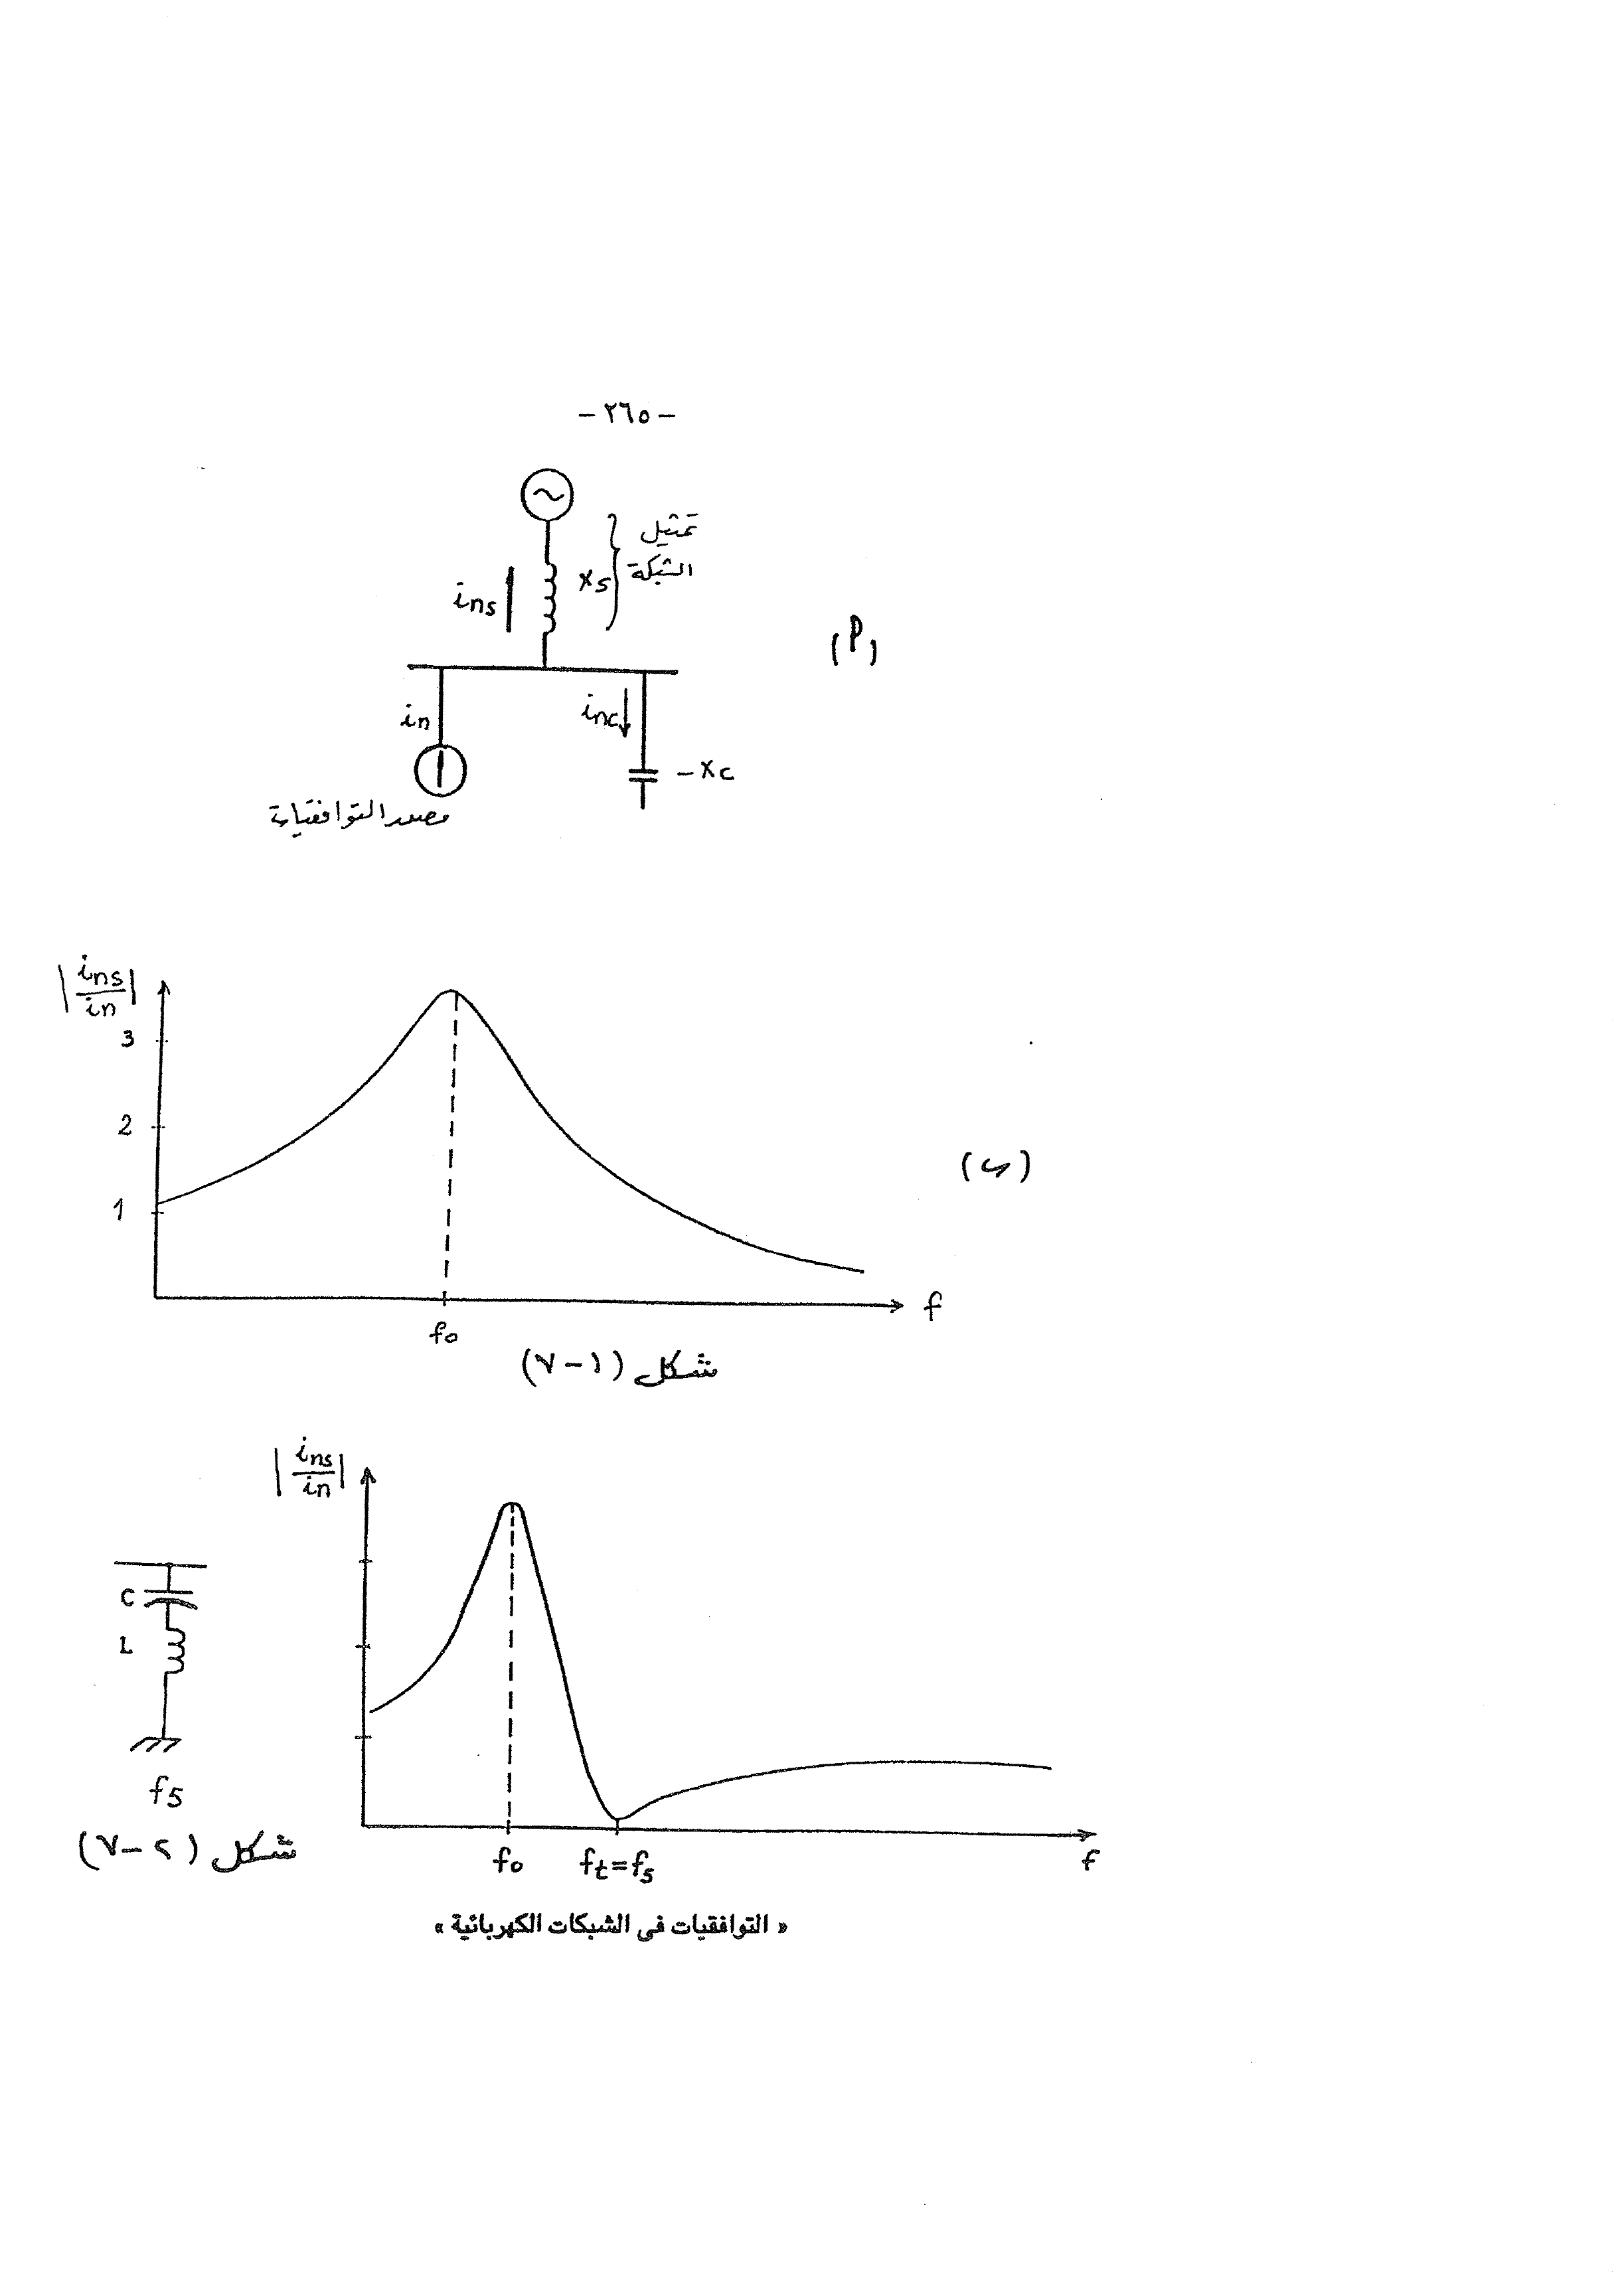 - ٢٦٥ -
تمثيل
الشبكة
xs
ins
(أ)
in
inc
-xc
مصدر التوافقيات
|ins/in|
3
2
1
(ب)
f
fo
شكل (١-٧)
|ins/in|
C
L
f5
fo
ft=f5
f
شكل (٢-٧)
« التوافقيات فى الشبكات الكهربائية »